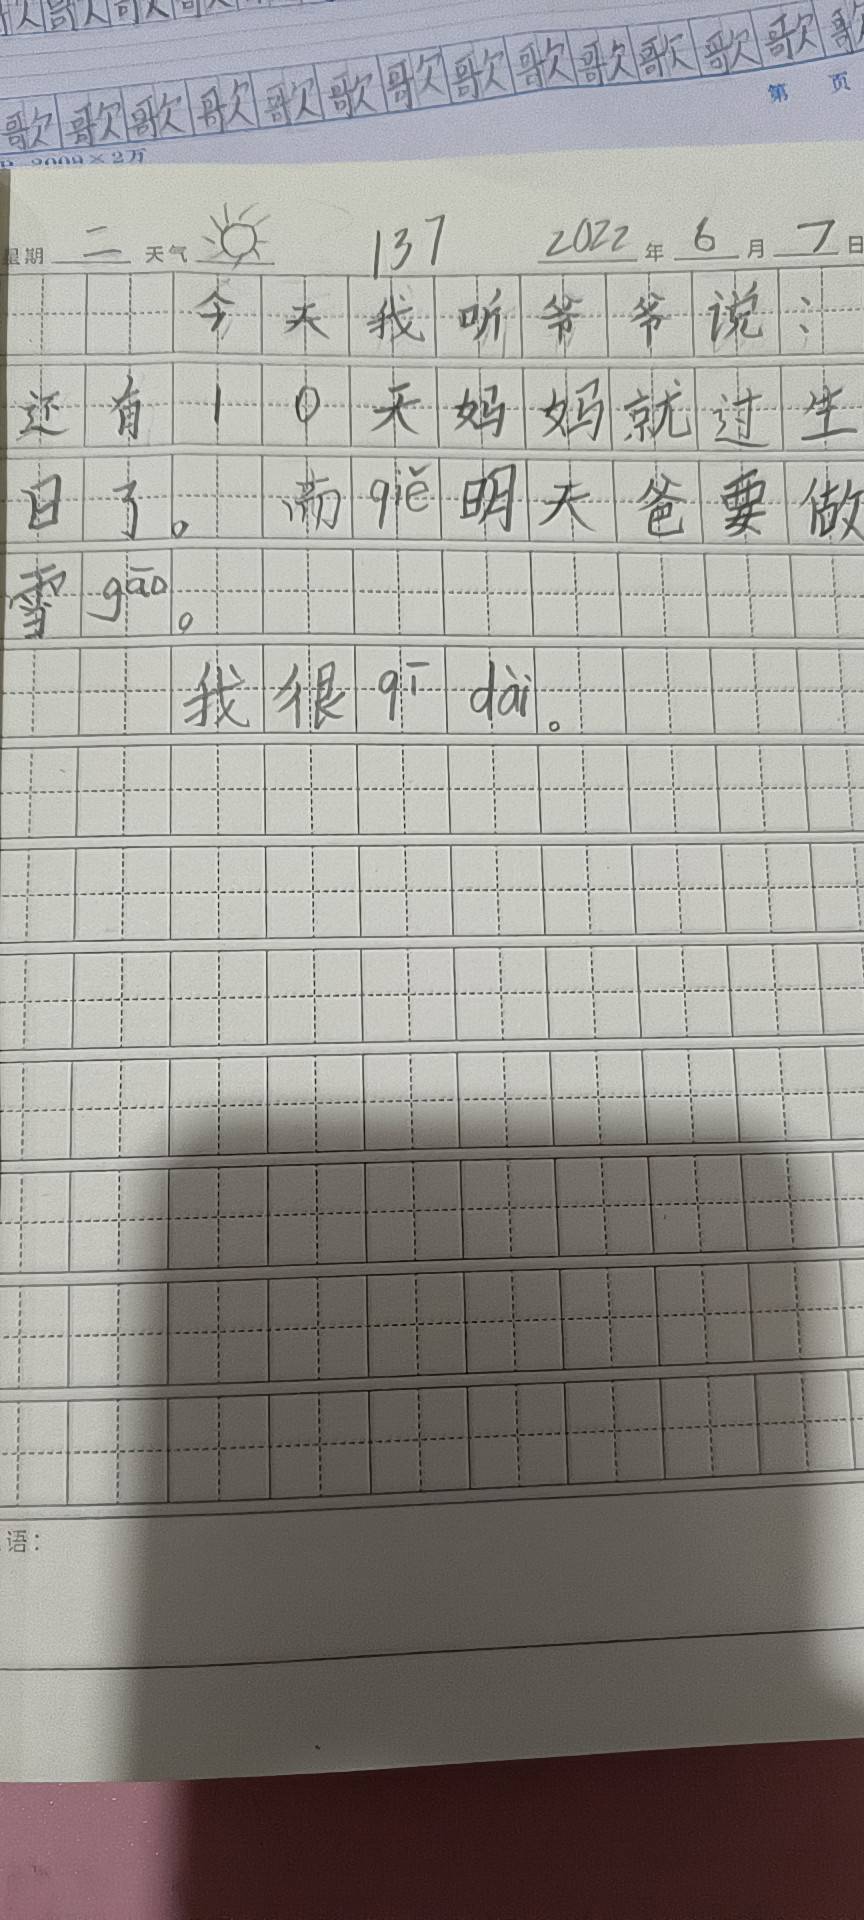 歌歌歌歌歌歌歌歌歌歌歌歌歌歌
第 页
2009×2万
星期 二 天气 137 2022 年 6 月 7 日
今天我听爷爷说：
还有10天妈妈就过生
日了。而qiě明天爸要做
雪gāo。
我很qī dài。
语：